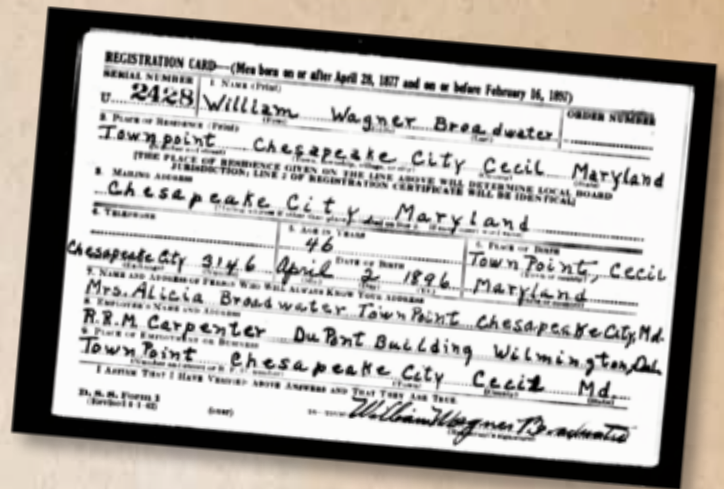 REGISTRATION CARD—(Men born on or after April 28, 1877 and on or before February 16, 1897)
SERIAL NUMBER 1. NAME (Print) ORDER NUMBER
U 2428 William Wagner Broadwater
2. PLACE OF RESIDENCE (Print)
Townpoint Chesapeake City Cecil Maryland
[THE PLACE OF RESIDENCE GIVEN ON THE LINE ABOVE WILL DETERMINE LOCAL BOARD
JURISDICTION; LINE 2 OF REGISTRATION CERTIFICATE WILL BE IDENTICAL]
3. MAILING ADDRESS
Chesapeake City Maryland
4. TELEPHONE 5. AGE IN YEARS 6. PLACE OF BIRTH
46 Town Point, Cecil
DATE OF BIRTH
Chesapeake City 3146 April 2 1896 Maryland
7. NAME AND ADDRESS OF PERSON WHO WILL ALWAYS KNOW YOUR ADDRESS
Mrs. Alicia Broadwater Town Point Chesapeake City, Md.
8. EMPLOYER'S NAME AND ADDRESS
R.R.M. Carpenter DuPont Building Wilmington, Del.
9. PLACE OF EMPLOYMENT OR BUSINESS
Town Point Chesapeake City Cecil Md.
I AFFIRM THAT I HAVE VERIFIED ABOVE ANSWERS AND THAT THEY ARE TRUE.
D. S. S. Form 1
(Revised 4-1-42) (over) William Wagner Broadwater